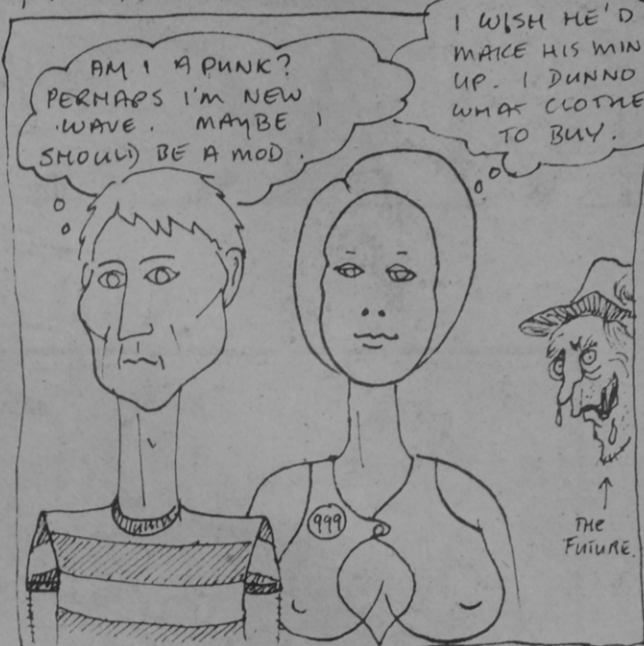 AM I A PUNK?
PERHAPS I'M NEW
WAVE. MAYBE I
SHOULD BE A MOD.
I WISH HE'D
MAKE HIS MIN
UP. I DUNNO
WHAT CLOTHE
TO BUY.
999
THE
FUTURE.